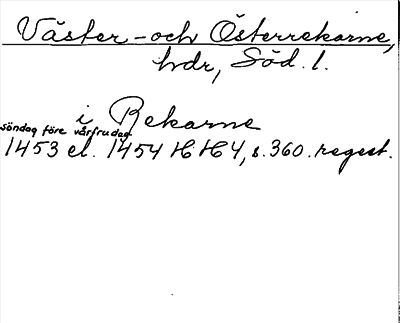 Väster- och Österrekarne,
hdr, Söd. l.
i Rekarne
söndag före vårfrudag
1453 el. 1454 HH 4, s. 360. regest.